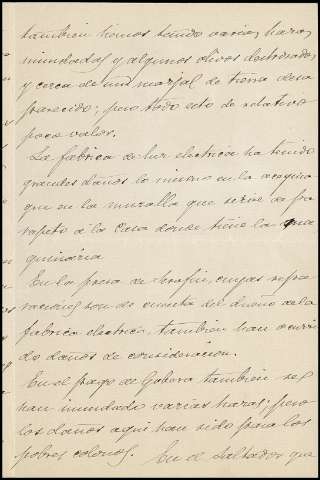 tambien hemos tenido varias haras
inundadas y algunos olivos destrozados
y cerca de un marjal de tierra desa
parecido; pero todo esto de relativo
poco valor.
La fabrica de luz electrica ha tenido
grandes daños lo mismo en la acequia
que en la muralla que sirve de pa
rapeto a la Casa donde tiene la ma
quinaria
En la presa de Serafin, cuyas repa
raciones son de cuenta del dueño de la
fabrica electrica, tambien han ocurri
do daños de consideracion.
En el pago de Gabora tambien se
han inundado varias haras; pero
los daños aqui han sido para los
pobres colonos. En el Saltador que